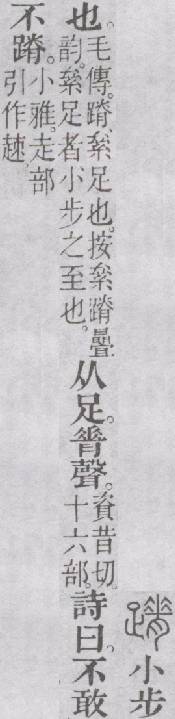 蹐小步
也。毛傳。蹐、絫足也。按絫蹐疊
韵。絫足者小步之至也。从足。脊聲。資昔切。
十六部。詩曰。不敢
不蹐。小雅。走部
引作趚